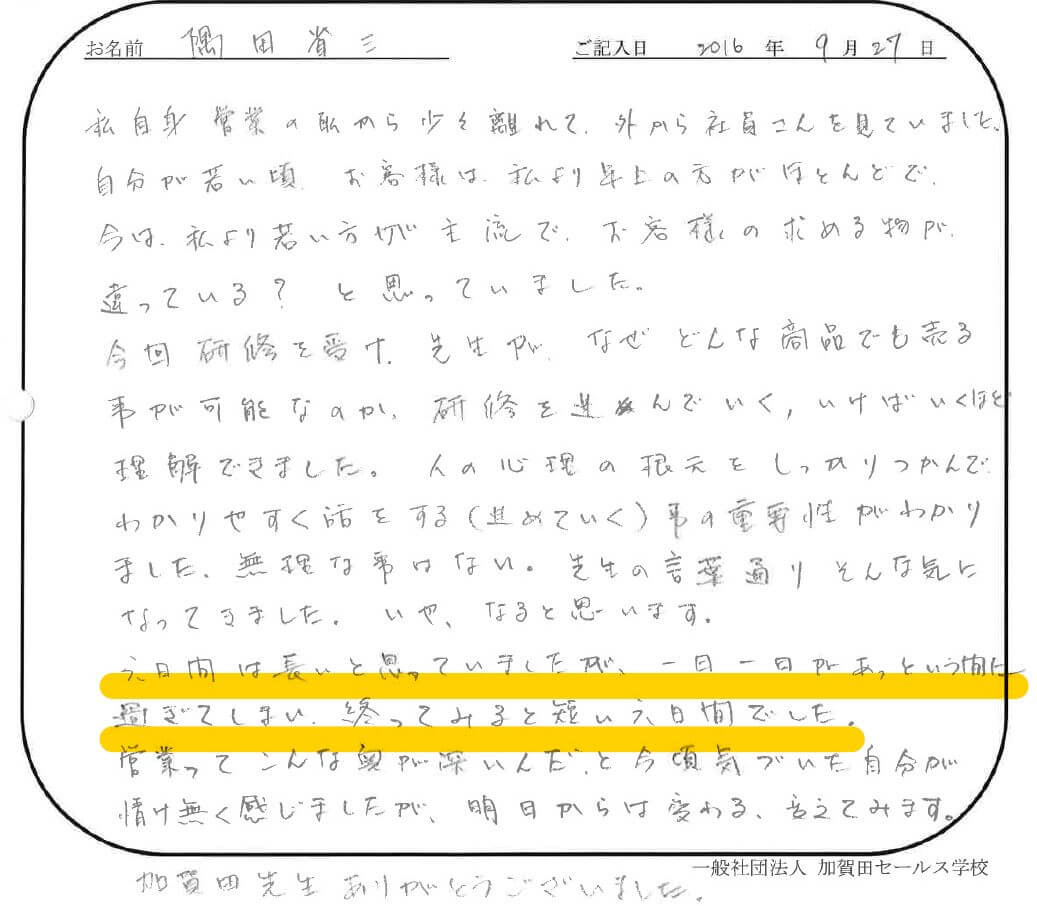 お名前 隅田省三 ご記入日 2016年9月27日
私自身営業の配から少々離れて、外から社員さんを見ていました、
自分が若い頃、お客様は、私より年上の方がほとんどで、
今は、私より若い方々が主流で、お客様の求める物が、
違っている？ と思っていました。
今回研修を受け、先生が、なぜどんな商品でも売る
事が可能なのか、研修を進めんでいく，いけばいくほど
理解できました。人の心理の根元をしっかりつかんで
わかりやすく話をする（進めていく）事の重要性がわかり
ました、無理な事はない。先生の言葉通りそんな気に
なってきました。いや、なると思います。
六日間は長いと思っていましたが、一日一日があっという間に
過ぎてしまい、終ってみると短い六日間でした。
営業ってこんな奥が深いんだ、と今頃気づいた自分が
情け無く感じましたが、明日からは変わる、変えてみます。
一般社団法人 加賀田セールス学校
加賀田先生ありがとうございました。